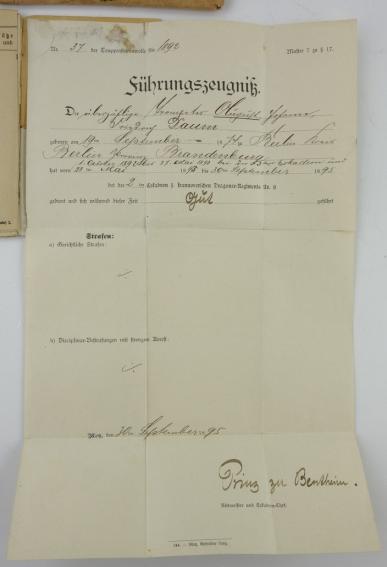 Nr. 37 der Truppenstammrolle für 1892
Muster 7 zu § 17.
Führungszeugniß.
Der überzählige Trompeter August Johann
Taum
geboren am 19ten September 1874 zu Berlin Kreis
Berlin Provinz Brandenburg
1. October 1892 bis 27. Mai 1893 bei der Eskadron und
hat vom 28ten Mai 1893 bis 30ten September 1895
bei der 2ten Eskadron 1. hannoverschen Dragoner-Regiments Nr. 9
gedient und sich während dieser Zeit Gut geführt
Strafen:
a) Gerichtliche Strafen:
b) Disciplinar-Bestrafungen mit strengem Arrest:
Metz, den 30ten September 95
Prinz zu Bentheim.
Rittmeister und Eskadron-Chef.